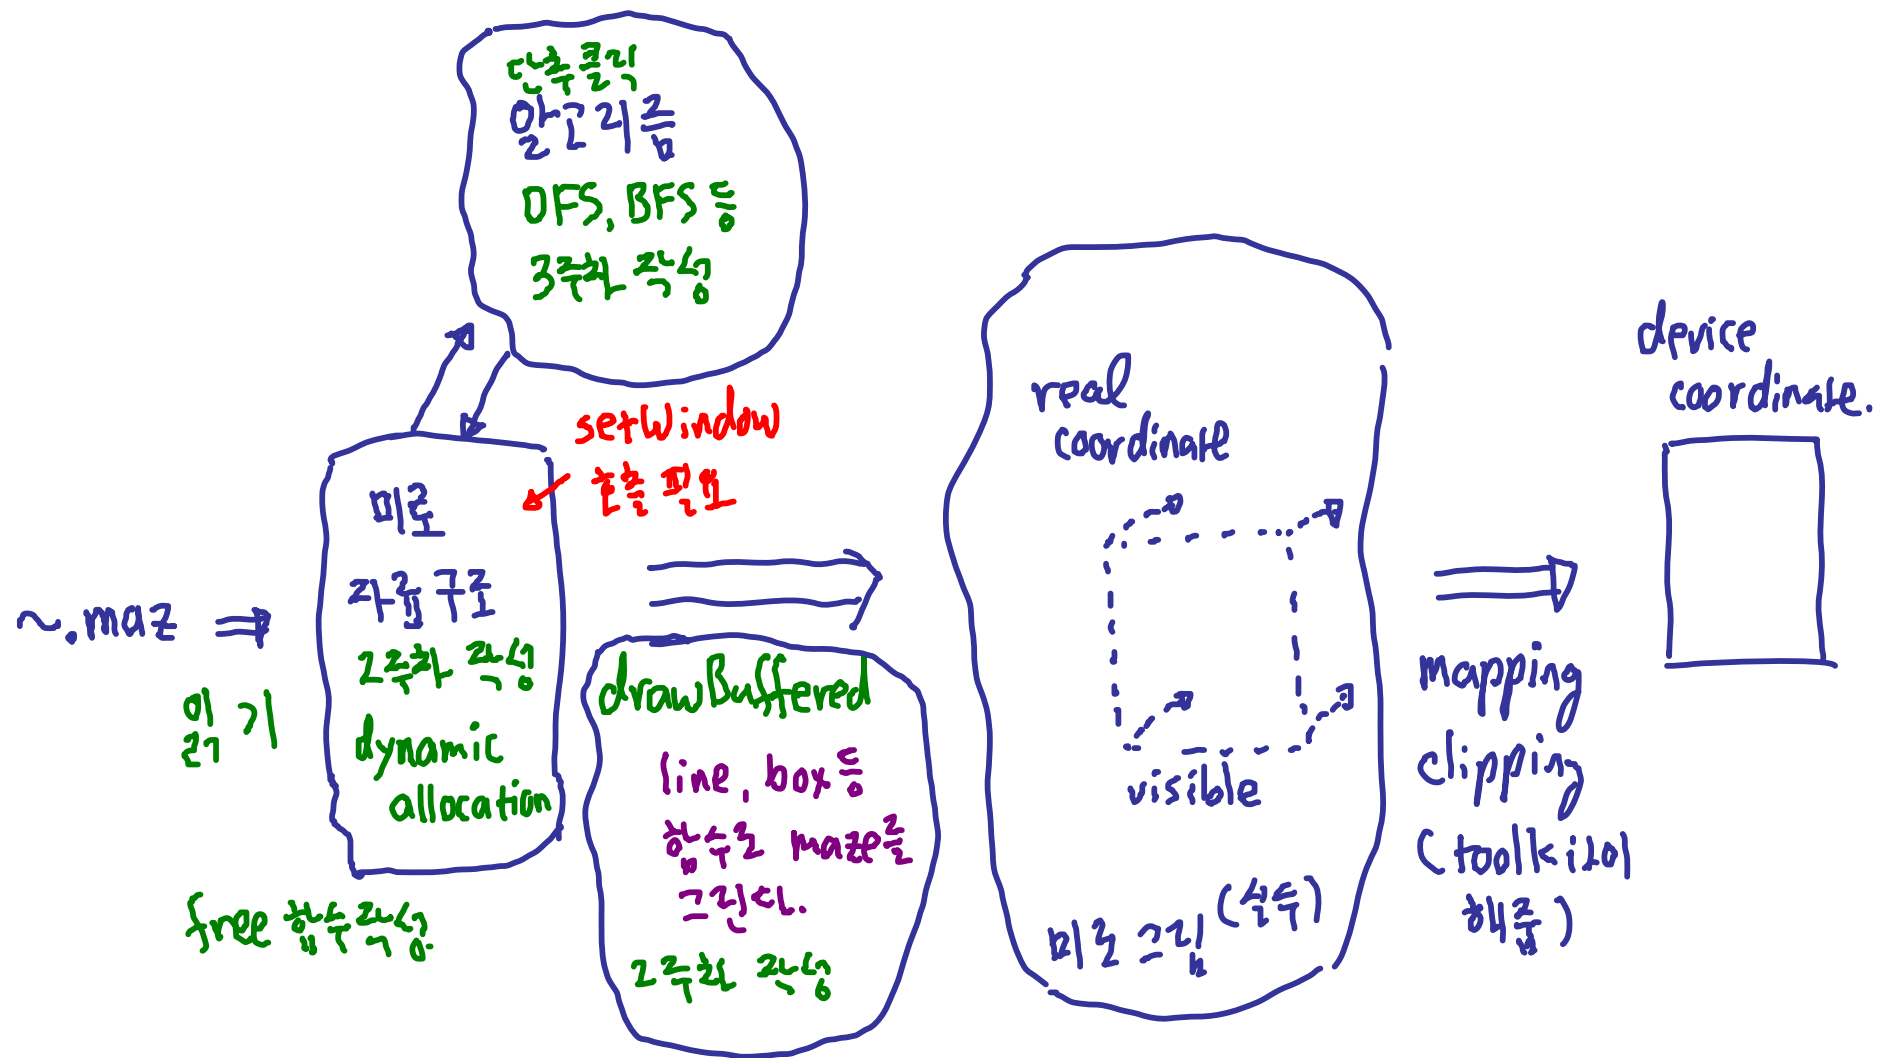 단추클릭
알고리즘
DFS, BFS 등
3주차 작성
setWindow
호출 필요
~.maz
읽기
미로
자료구조
2주차 작성
dynamic
allocation
free 함수 작성.
drawBuffered
line, box 등
함수로 maze를
그린다.
2주차 작성
real
coordinate
visible
미로 그림 (실수)
mapping
clipping
(toolkit이
해줌)
device
coordinate.